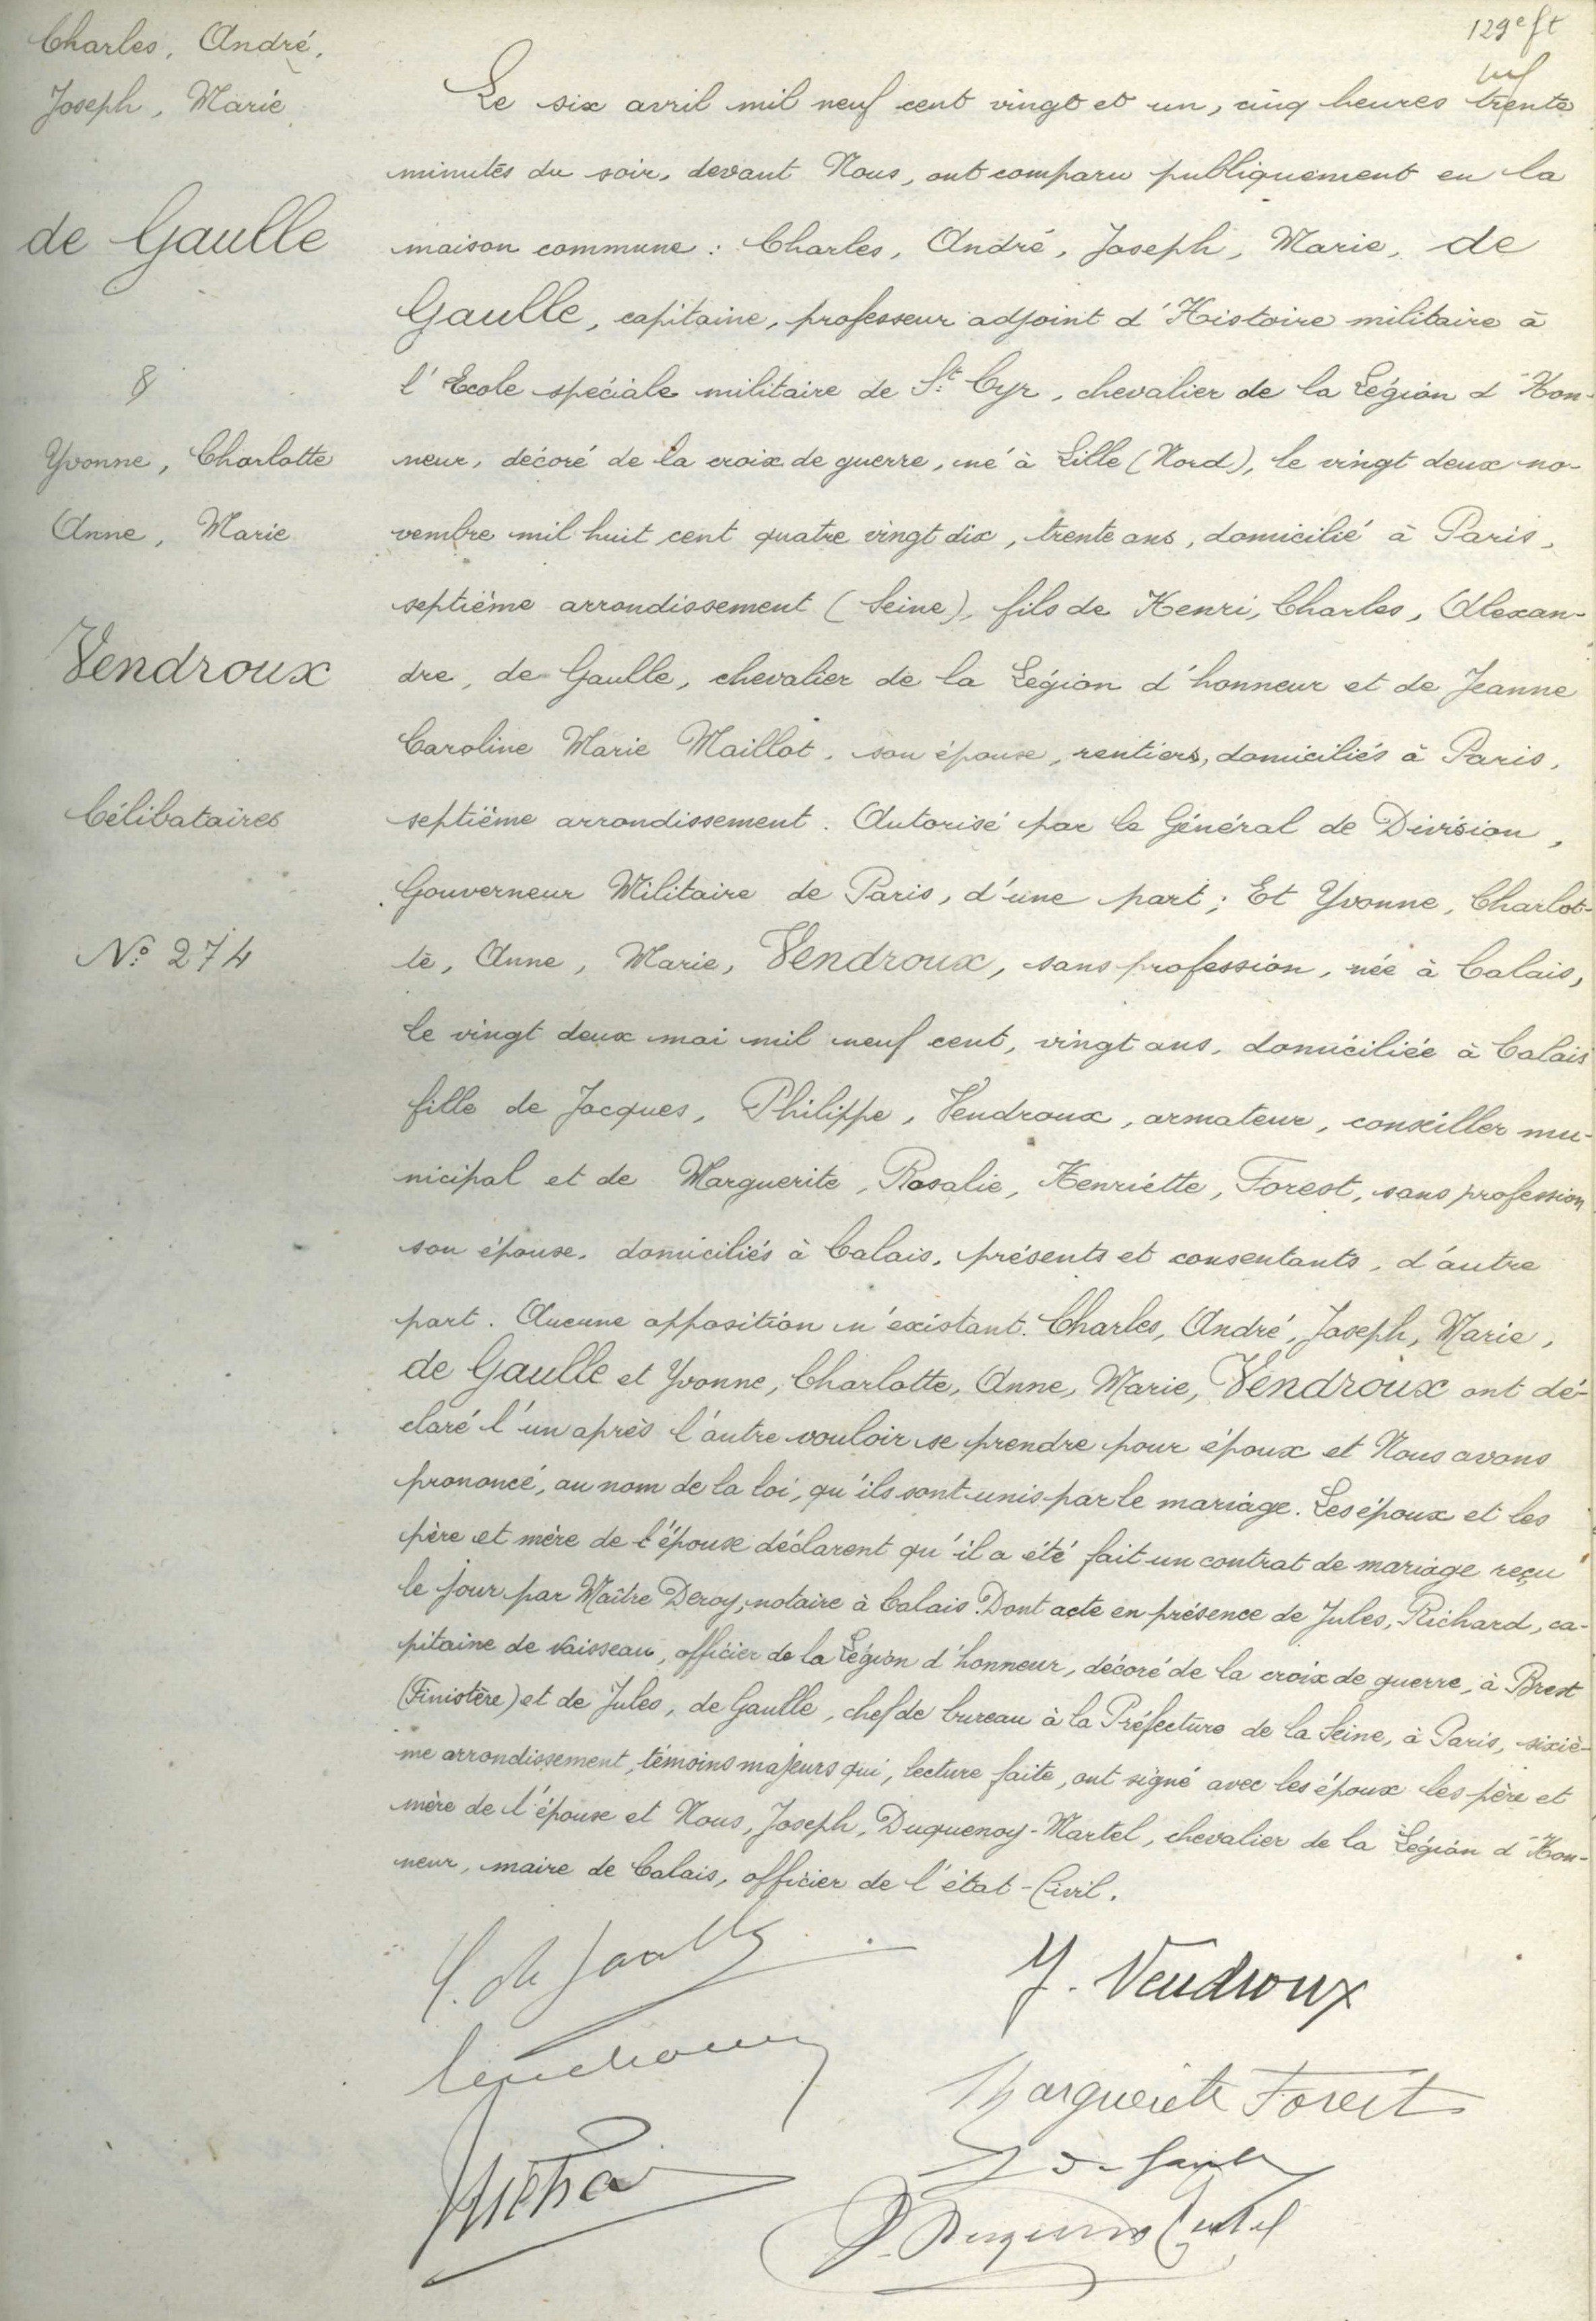 129e ft
Charles, André,
Joseph, Marie
de Gaulle
&
Yvonne, Charlotte
Anne, Marie
Vendroux
Célibataires
No 274
Le six avril mil neuf cent vingt et un, cinq heures trente
minutes du soir, devant Nous, ont comparu publiquement en la
maison commune : Charles, André, Joseph, Marie, de
Gaulle, capitaine, professeur adjoint d'Histoire militaire à
l'Ecole spéciale militaire de St Cyr, chevalier de la Légion d'Hon-
neur, décoré de la croix de guerre, né à Lille (Nord), le vingt deux no-
vembre mil huit cent quatre vingt dix, trente ans, domicilié à Paris,
septième arrondissement (Seine), fils de Henri, Charles, Alexan-
dre, de Gaulle, chevalier de la Légion d'honneur et de Jeanne
Caroline Marie Maillot, son épouse, rentiers, domiciliés à Paris,
septième arrondissement. Autorisé par le Général de Division,
Gouverneur Militaire de Paris, d'une part ; Et Yvonne, Charlot-
te, Anne, Marie, Vendroux, sans profession, née à Calais,
le vingt deux mai mil neuf cent, vingt ans, domiciliée à Calais
fille de Jacques, Philippe, Vendroux, armateur, conseiller mu-
nicipal et de Marguerite, Rosalie, Henriette, Forest, sans profession
son épouse, domiciliés à Calais, présents et consentants, d'autre
part. Aucune opposition n'existant. Charles, André, Joseph, Marie,
de Gaulle et Yvonne, Charlotte, Anne, Marie, Vendroux ont dé-
claré l'un après l'autre vouloir se prendre pour époux et Nous avons
prononcé, au nom de la loi, qu'ils sont unis par le mariage. Les époux et les
père et mère de l'épouse déclarent qu'il a été fait un contrat de mariage reçu
le jour par Maître Deroy, notaire à Calais. Dont acte en présence de Jules, Richard, ca-
pitaine de vaisseau, officier de la Légion d'honneur, décoré de la croix de guerre, à Brest
(Finistère) et de Jules, de Gaulle, chef de bureau à la Préfecture de la Seine, à Paris, sixiè-
me arrondissement, témoins majeurs qui, lecture faite, ont signé avec les époux les père et
mère de l'épouse et Nous, Joseph, Duquenoy-Martel, chevalier de la Légion d'Hon-
neur, maire de Calais, officier de l'état-Civil.
C. de Gaulle
Y. Vendroux
Vendroux
Marguerite Forest
J de Gaulle